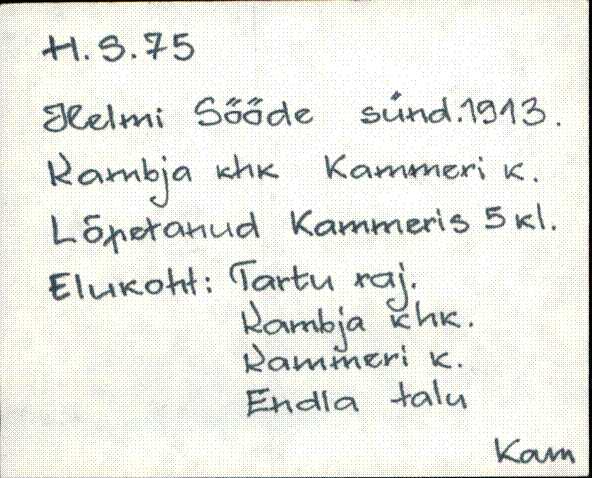 H. S. 75
Helmi Sööde sünd. 1913.
Kambja khk Kammeri k.
Lõpetanud Kammeris 5 kl.
Elukoht: Tartu raj.
Kambja khk.
Kammeri k.
Endla talu
Kam